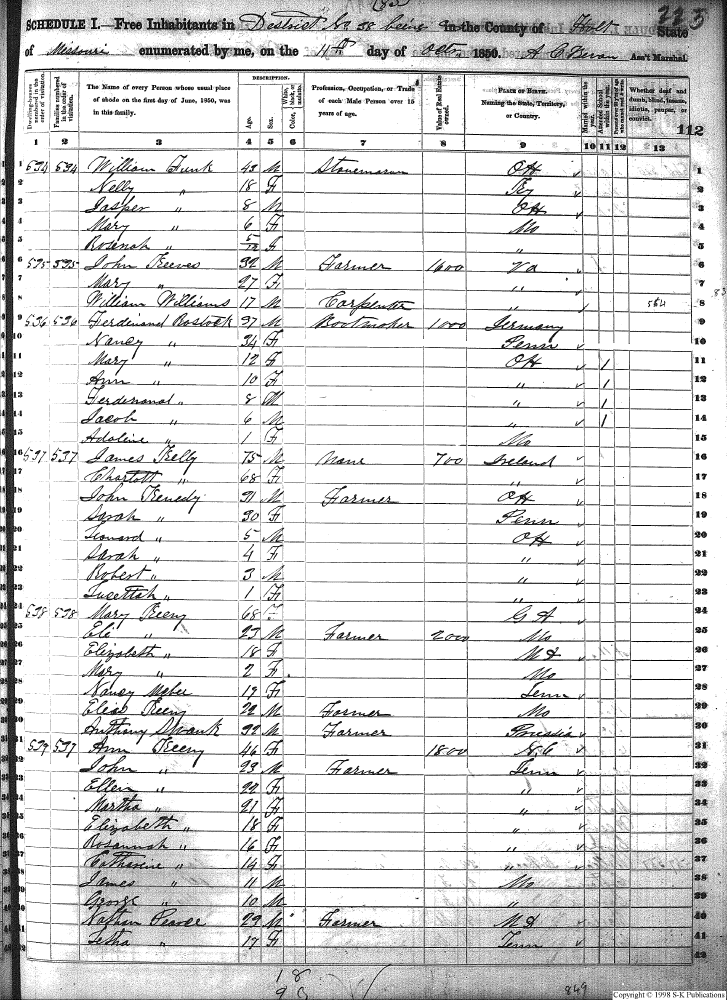 223
SCHEDULE I.—Free Inhabitants in District No 38 being in the County of Holt State
of Missouri enumerated by me, on the 11th day of Octr 1850. A C Bevan Ass't Marshal.
Dwelling-houses numbered in the order of visitation.
Families numbered in the order of visitation.
The Name of every Person whose usual place of abode on the first day of June, 1850, was in this family.
DESCRIPTION.
Age.
Sex.
Color, White, black, or mulatto.
Profession, Occupation, or Trade of each Male Person over 15 years of age.
Value of Real Estate owned.
PLACE OF BIRTH. Naming the State, Territory, or Country.
Married within the year.
Attended School within the year.
Whether deaf and dumb, blind, insane, idiotic, pauper, or convict.
112
1 2 3 4 5 6 7 8 9 10 11 12 13
1 534 534 William Funk 43 M OH 1
2 Nelly " 18 F Ky 2
3 Jasper " 8 M OH 3
4 Mary " 6 F Mo 4
5 Rosenah " 5/12 F " 5
6 535 535 John Reeves 32 M Farmer 1600 Va 6
7 Mary " 27 F " 7
8 William Williams 17 M Carpenter " 564 8
9 536 536 Ferdinand Rostock 37 M Bootmaker 1000 Germany 9
10 Nancy " 34 F Penn 10
11 Mary " 12 F OH 1 11
12 Ann " 10 F " 1 12
13 Ferdinand " 8 M " 1 13
14 Jacob " 6 M " 1 14
15 Adoline " 1 F Mo 15
16 537 537 James Kelly 75 M None 700 Ireland 16
17 Charlott " 68 F " 17
18 John Kenedy 31 M Farmer OH 18
19 Sarah " 30 F Penn 19
20 Leonard " 5 M OH 20
21 Sarah " 4 F " 21
22 Robert " 3 M " 22
23 Lucettah " 1 F " 23
24 538 538 Mary Keeny 68 F GA 24
25 Eli " 23 M Farmer 2000 Mo 25
26 Elizabeth " 18 F Md 26
27 Mary " 2 F Mo 27
28 Nancy 19 F Tenn 28
29 Elias Keeny 22 M Farmer Mo 29
30 Anthony Swank 32 M Farmer Prussia 30
31 539 539 Ann Keeny 46 F 1800 N.C 31
32 John " 23 M Farmer Tenn 32
33 Ellen " 22 F " 33
34 Martha " 21 F " 34
35 Elizabeth " 18 F " 35
36 Rosannah " 16 F " 36
37 Catharine " 14 F " 37
38 James " 11 M Mo 38
39 George " 10 M " 39
40 Nathan 29 M Farmer Md 40
41 Letha " 17 F Tenn 41
42 42
18
849
Copyright © 1998 S-K Publications